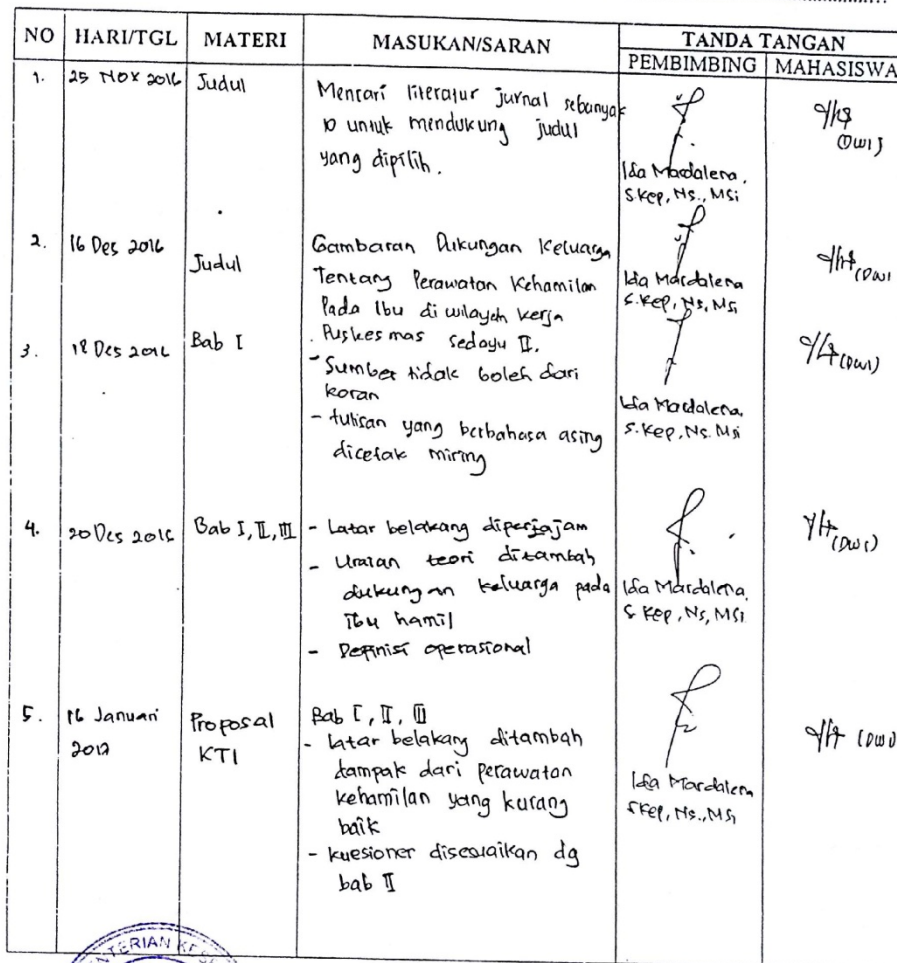 NO HARI/TGL MATERI MASUKAN/SARAN TANDA TANGAN
PEMBIMBING MAHASISWA
1. 25 Nov 2016 Judul Mencari literatur jurnal sebanyak
10 untuk mendukung judul
yang dipilih.
(Dwi)
Ida Mardalena,
S.Kep, Ns., MSi
2. 16 Des 2016 Judul Gambaran Dukungan Keluarga
Tentang Perawatan Kehamilan
Pada Ibu di wilayah kerja
Puskesmas sedayu II.
Ida Mardalena
S.Kep, Ns, MSi
(Dwi
3. 18 Des 2016 Bab I - Sumber tidak boleh dari
koran
- tulisan yang berbahasa asing
dicetak miring
Ida Mardalena,
S.Kep, Ns. MSi
(Dwi)
4. 20 Des 2016 Bab I, II, III - Latar belakang diperjajam
- Uraian teori ditambah
dukungan keluarga pada
ibu hamil
- Definisi operasional
Ida Mardalena,
S.Kep, Ns, MSi
(Dwi)
5. 16 Januari
2017
Proposal
KTI
Bab I, II, III
- latar belakang ditambah
dampak dari perawatan
kehamilan yang kurang
baik
- kuesioner disesuaikan dg
bab II
Ida Mardalena
S.Kep, Ns., MSi
(Dwi)